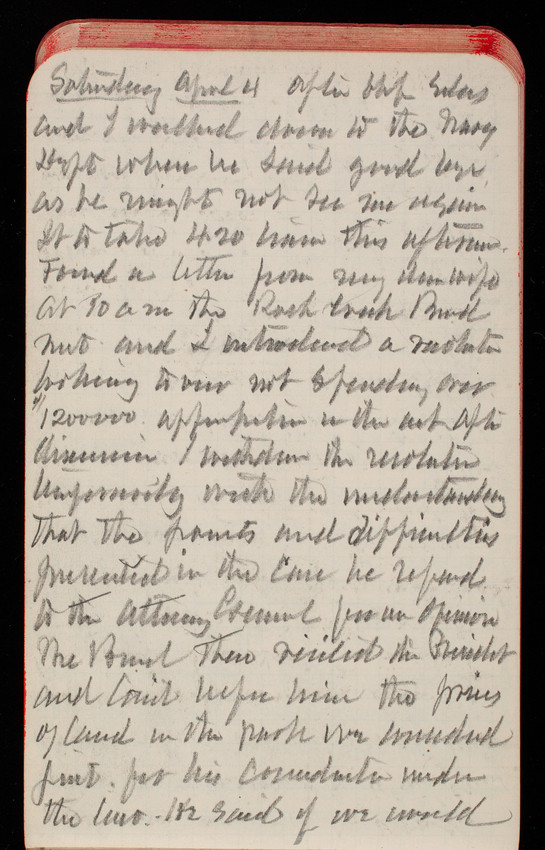 Saturday April 4 after bkf Eders
and I walked down to the Navy
Dept where he said good bye
as he might not see me again
to take 420 train this afternoon.
Found a letter from my dear wife
At 10 am the Rock Creek Board
met and I introduced a resolution
looking to our not spending over
$1200000 appropriation in the act After
discussion I withdrew the resolution
temporarily with the understanding
that the points and difficulties
presented in the case be referred
to the Attorney General for an opinion
The Board then visited the President
and laid before him the prices
of land in the park we considered
just. for his consideration under
the law. He said if we would